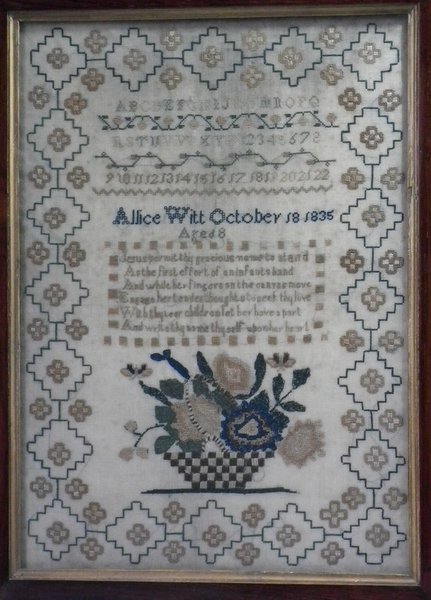 ABCDEFGHIJ MNOPQ
RSTUVWXYZ 12345678
9 10 11 12 13 14 15 16 17 18 19 20 21 22
Allice Witt October 18 1835
Aged 8
Jesus permit thy gracious name to stand
As the first effort of an infants hand
And while her fingers on the canvas move
Engage her tender thoughts to seek thy love
With thy dear children let her have a part
And write thy name thy self upon her heart